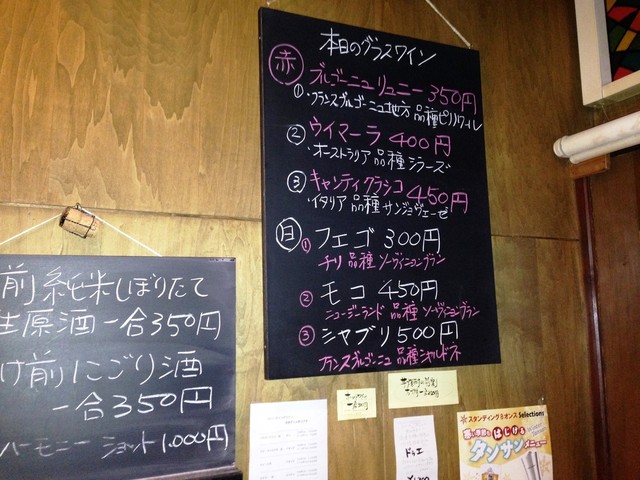 本日のグラスワイン
赤
① ブルゴーニュリュニー 350円
・フランスブルゴーニュ地方 品種ピノノワール
② ウイマーラ 400円
・オーストラリア 品種 シラーズ
③ キャンティクラシコ 450円
・イタリア 品種 サンジョヴェーゼ
白
① フエゴ 300円
チリ 品種 ソーヴィニョンブラン
② モコ 450円
ニュージーランド 品種 ソーヴィニョンブラン
③ シャブリ 500円
フランスブルゴーニュ 品種シャルドネ
前 純米しぼりたて
生原酒 一合350円
け前 にごり酒
一合350円
ハーモニー ショット 1.000円
ドゥエ
スタンディング オンス Selections
はじける
タンサンメニュー